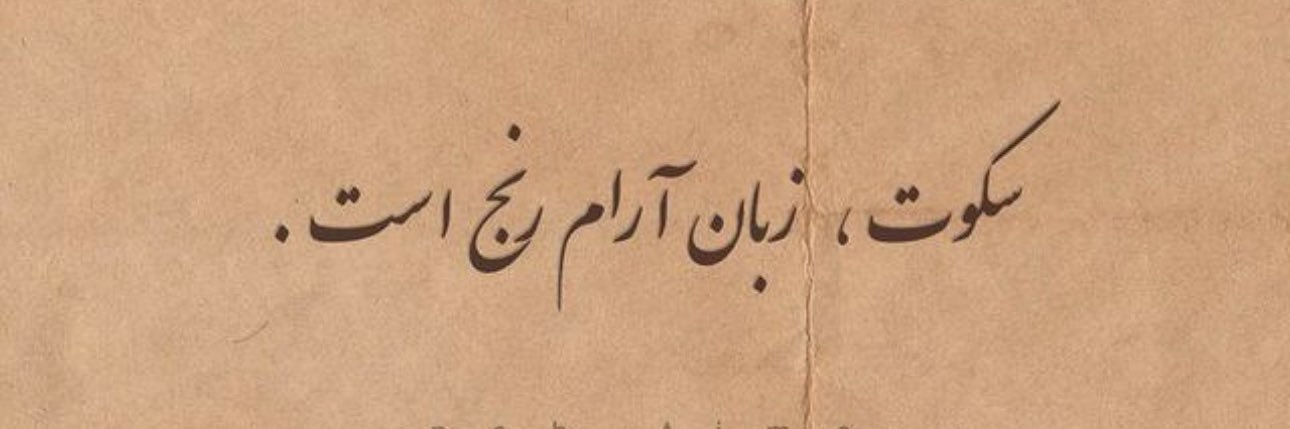 سکوت ، زبان آرام رنج است .